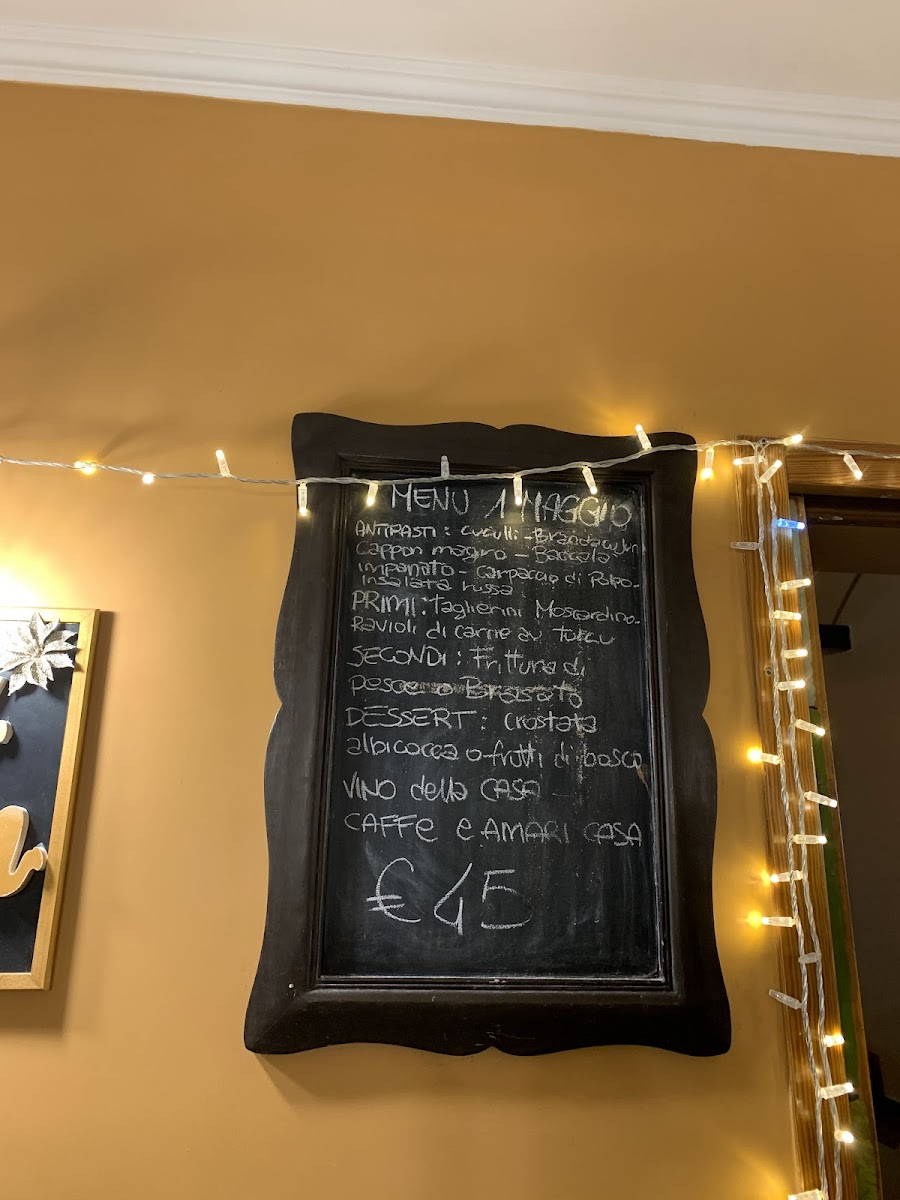 MENU 1 MAGGIO
ANTIPASTI: cuculli - Brandacujun
Cappon magro - Baccala
impanato - Carpaccio di Polpo -
Insalata russa.
PRIMI: Taglierini Moscardino -
Ravioli di carne au toccu
SECONDI: Frittura di
pesce o Brasato
DESSERT: crostata
albicocca o frutti di bosco
VINO della CASA
CAFFE e AMARI CASA
€ 45